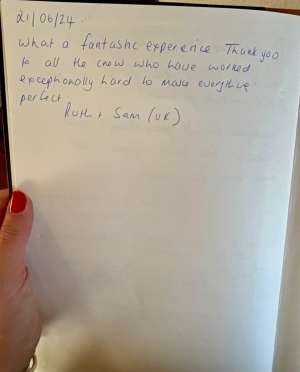 21/06/24.
What a fantastic experience Thank you
to all the crew who have worked
exceptionally hard to make everything
perfect
Ruth + Sam (UK)